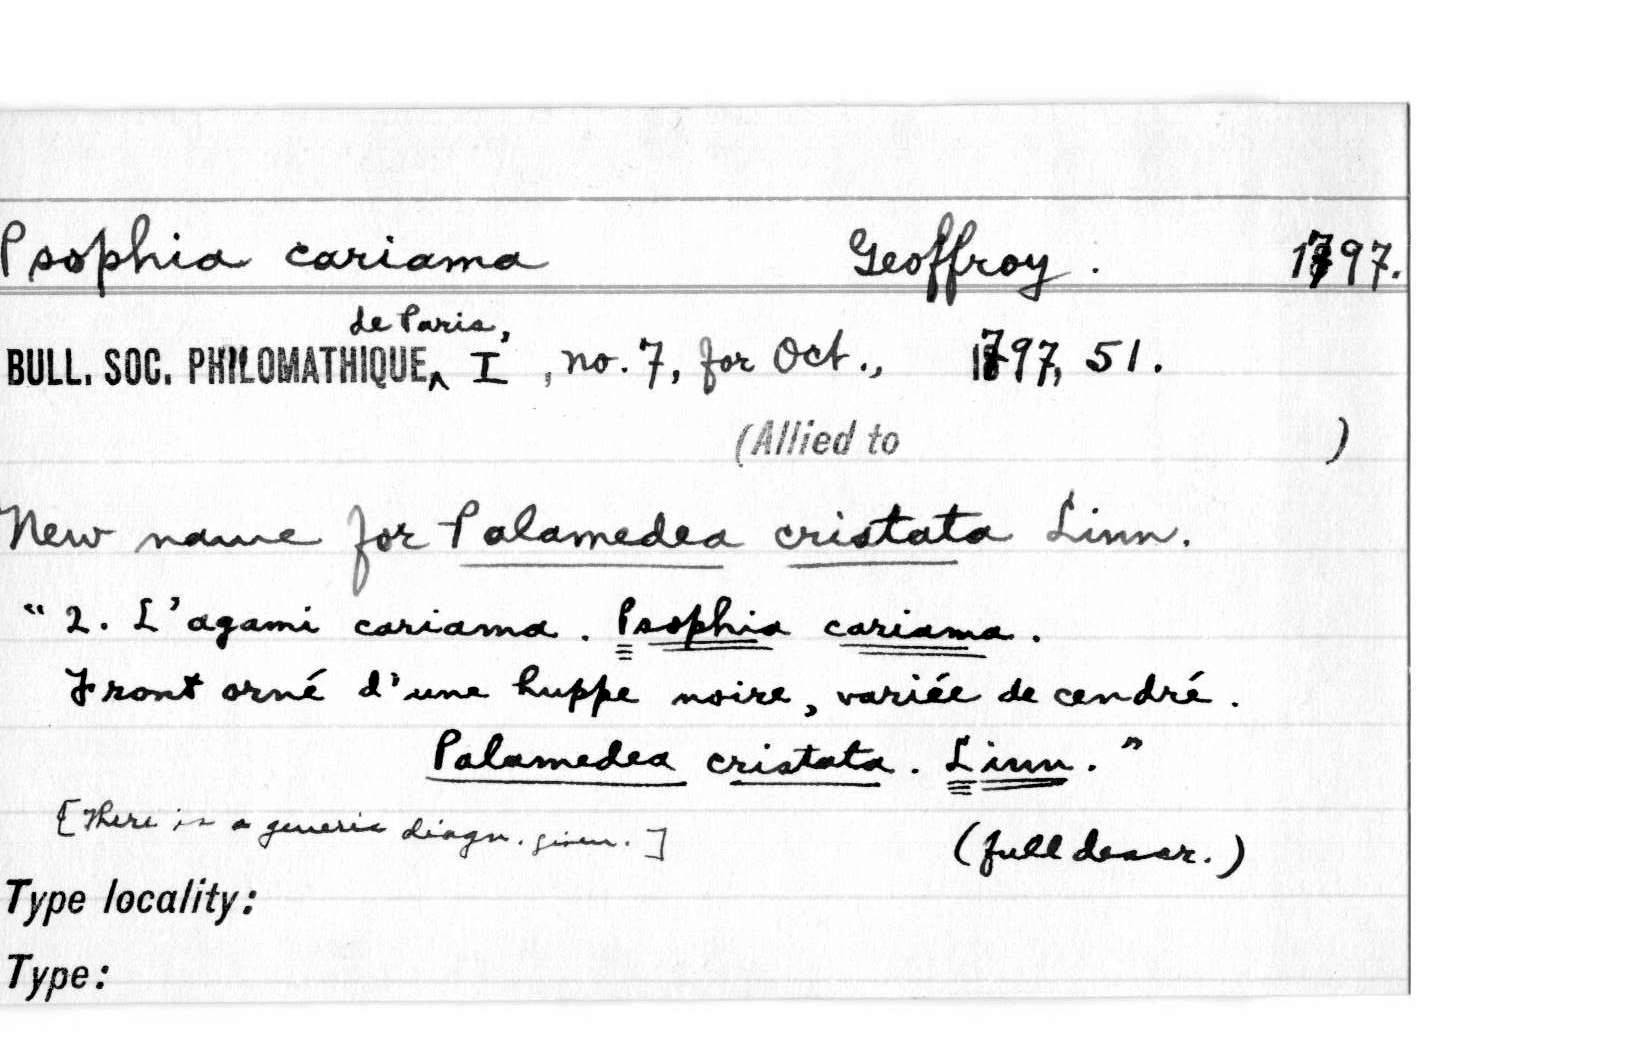 Psophia cariama Geoffroy. 1797.
de Paris,
BULL. SOC. PHILOMATHIQUE, I, no. 7, for Oct., 1797, 51.
(Allied to )
New name for Palamedea cristata Linn.
"2. L'agami cariama. Psophia cariama.
Front orné d'une huppe noire, variée de cendré.
Palamedea cristata. Linn."
[There is a generic diagn. given.] (full descr.)
Type locality:
Type: